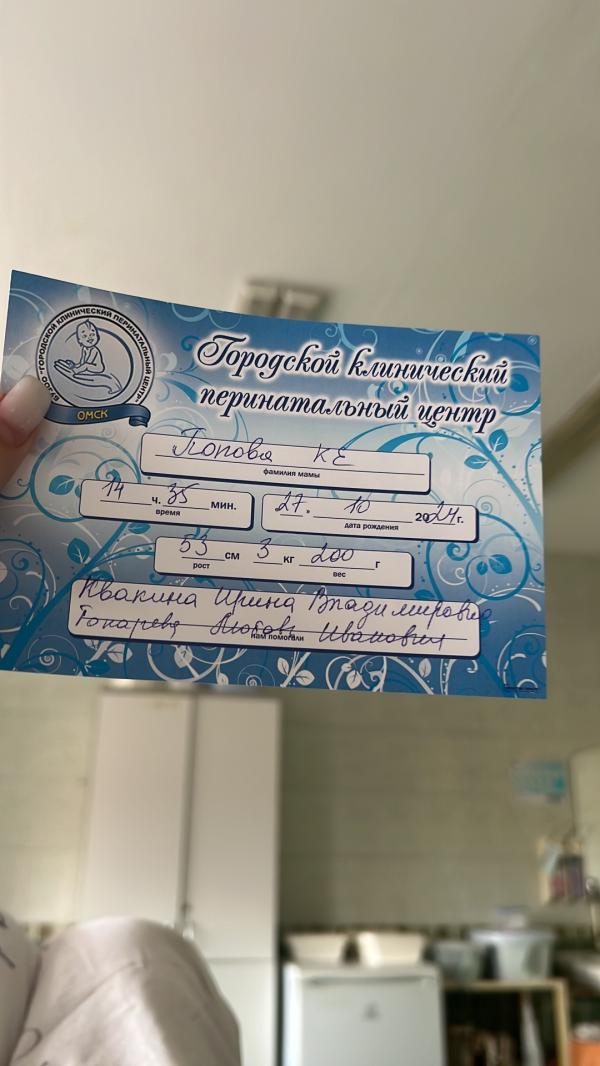 БУЗОО "ГОРОДСКОЙ КЛИНИЧЕСКИЙ ПЕРИНАТАЛЬНЫЙ ЦЕНТР"
ОМСК
Городской клинический
перинатальный центр
Попова КЕ
фамилия мамы
14 ч. 35 мин.
время
27. 10 2024 г.
дата рождения
53 см 3 кг 200 г
рост вес
Ивакина Ирина Владимировна
Токарева Любовь Ивановна
нам помогали